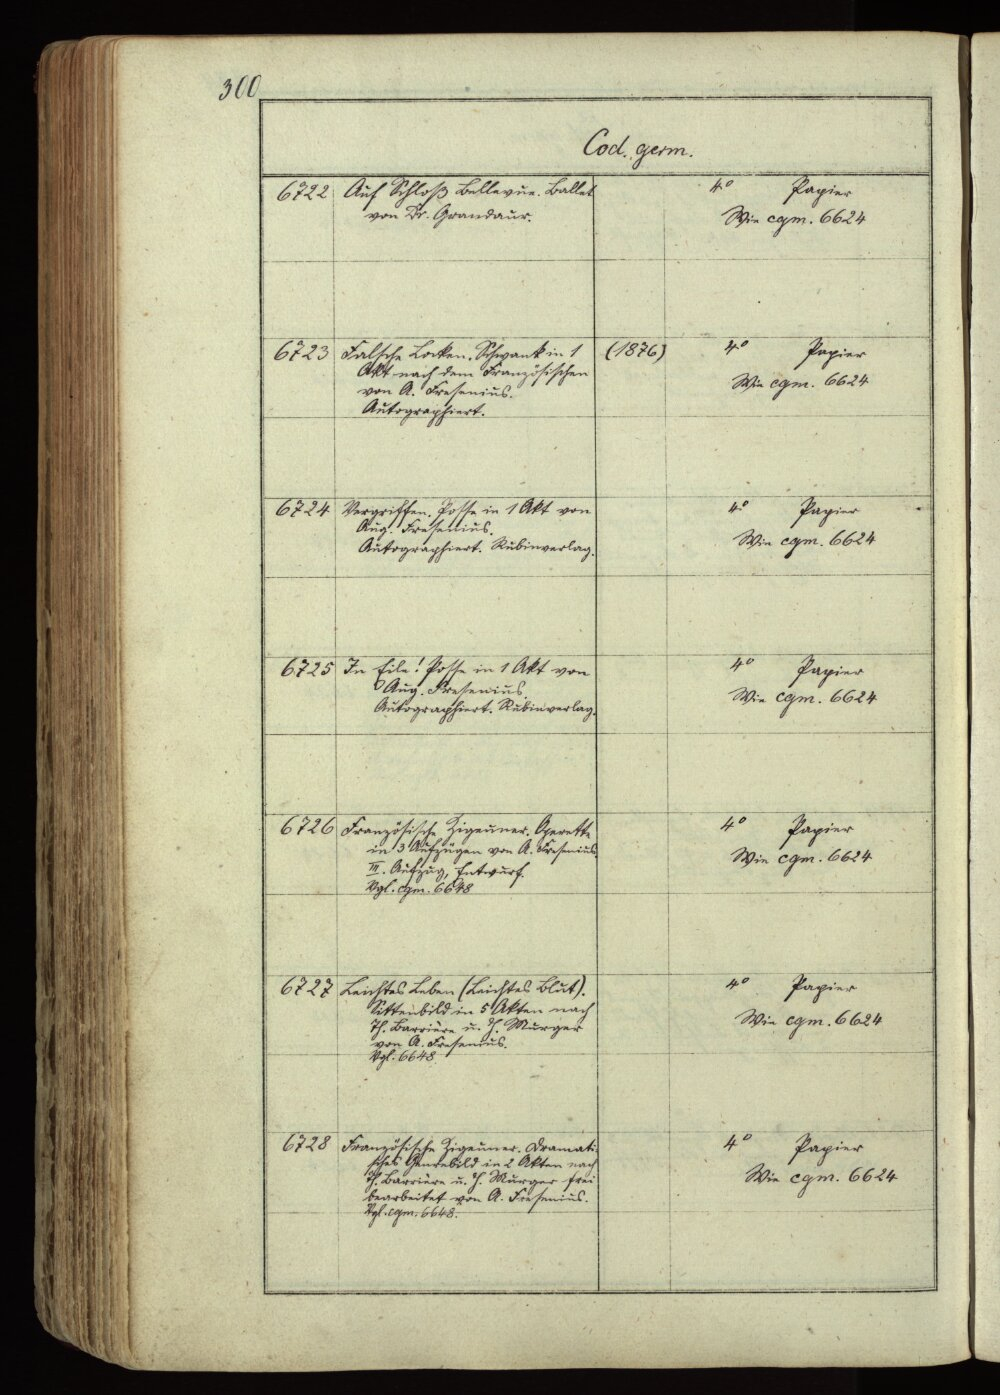 300
Cod. germ.
6722 Auf Schloß Bellevue. Ballet 4° Papier
von Dr. Grandaur. Wie cgm. 6624
6723 Falsche Locken. Schwank in 1 (1876) 4° Papier
Akt nach dem Französischen Wie cgm. 6624
von A. Fresenius.
Autographiert.
6724 Vergriffen. Posse in 1 Akt von 4° Papier
Aug. Fresenius. Wie cgm. 6624
Autographiert. Rubinverlag.
6725 In Eile! Posse in 1 Akt von 4° Papier
Aug. Fresenius. Wie cgm. 6624
Autographiert. Rubinverlag.
6726 Französische Zigeuner. Operette 4° Papier
in 3 Aufzügen von A. Fresenius. Wie cgm. 6624
III. Aufzug, Entwurf.
Vgl. cgm. 6648
6727 Leichtes Leben (Leichtes Blut). 4° Papier
Sittenbild in 5 Akten nach Wie cgm. 6624
Th. Barrière u. H. Murger
von A. Fresenius.
Vgl. 6648
6728 Französische Zigeuner. Dramati- 4° Papier
sches Genrebild in 2 Akten nach Wie cgm. 6624
Th. Barrière u. H. Murger frei
bearbeitet von A. Fresenius.
Vgl. cgm. 6648.